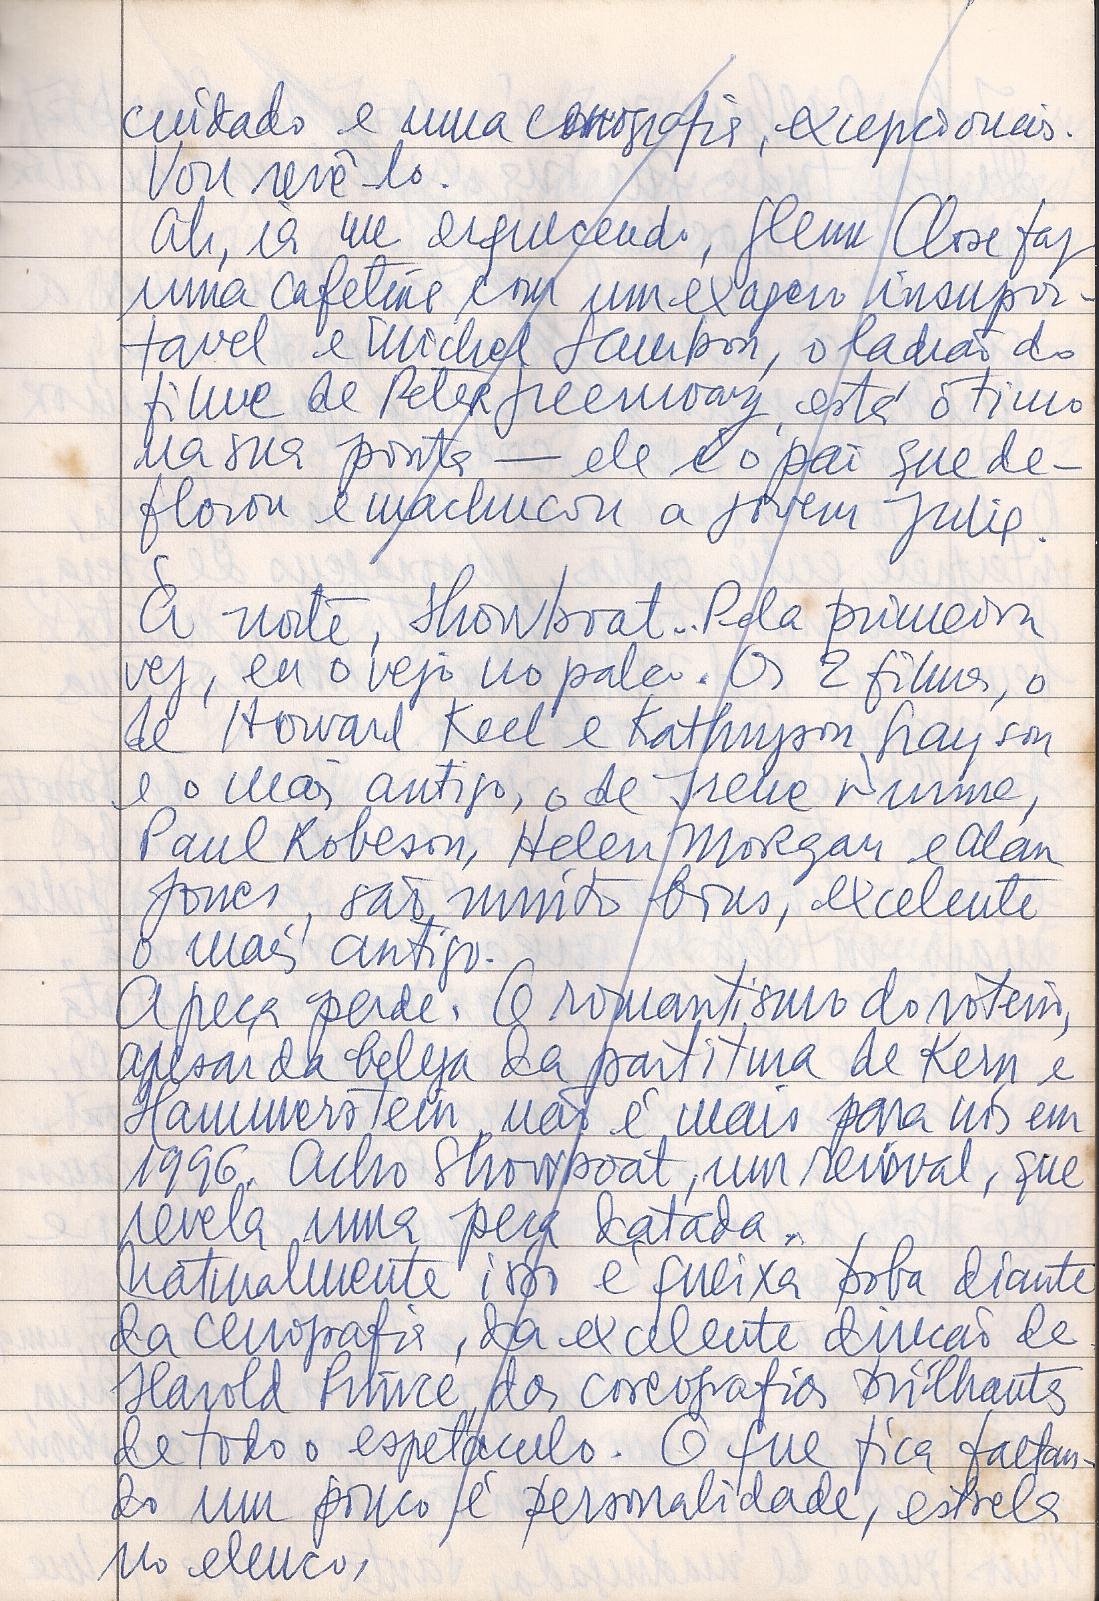 cuidado e uma cenografia, excepcionais.
Vou revê-lo.
Ah, ia me esquecendo, Glenn Close faz
uma cafetina com um exagero insupor-
tavel e Michel Gambon, o ladrão do
filme de Peter Greenway, está ótimo
na sua ponta — ele é o pai que de-
florou e machucou a jovem Julie.
À noite, Showboat.. Pela primeira
vez, eu o vejo no palco. Os 2 filmes, o
de Howard Keel e Kathryson Grayson
e o mais antigo, o de Irene Dunne,
Paul Robeson, Helen Morgan e Alan
Jones, são muito bons, excelente
o mais antigo.
A peça perde. O romantismo do roteiro,
apesar da beleza da partitura de Kern e
Hammerstein não é mais para nós em
1996. Acho Showboat, um revival, que
revela uma peça datada.
Naturalmente isso é queixa boba diante
da cenografia, da excelente direção de
Harold Prince, das coreografias brilhantes
de todo o espetáculo. O que fica faltan-
do um pouco é personalidade, estrela
no elenco,